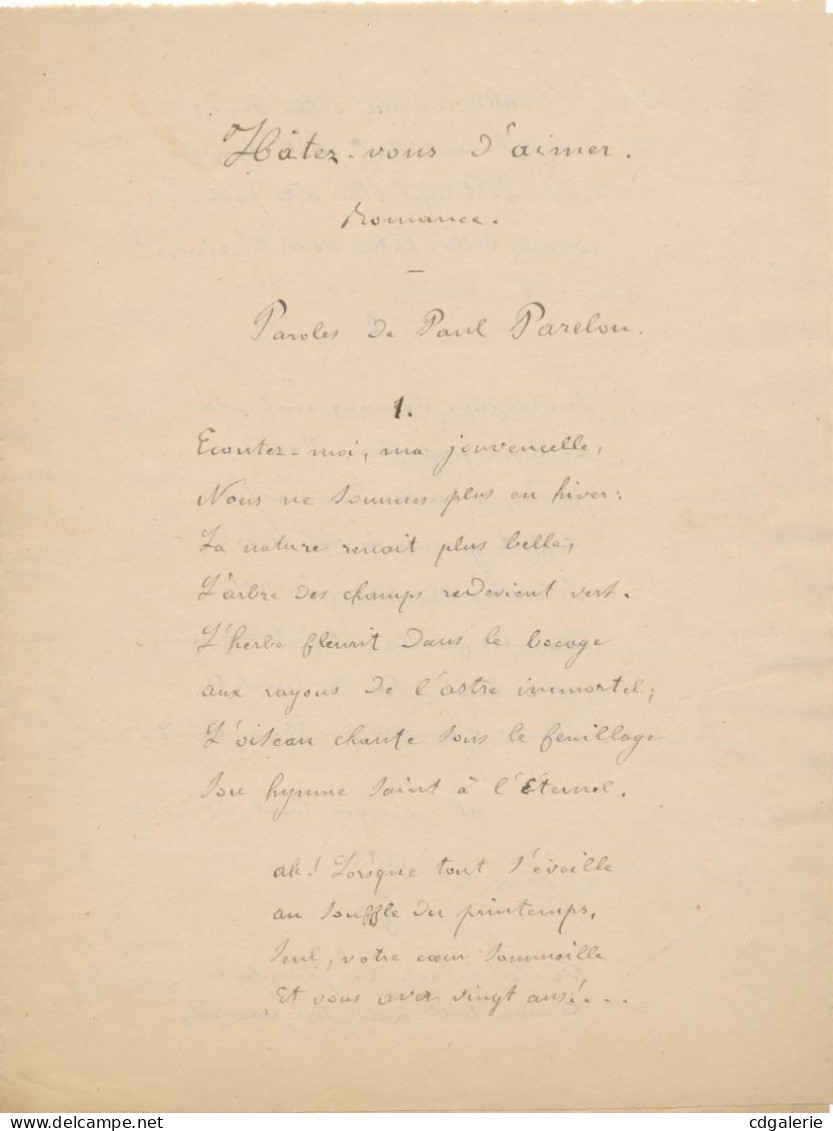 Hâtez-vous d'aimer.
Romance.
Paroles de Paul Parelon.
1.
Ecoutez-moi, ma jouvencelle,
Nous ne sommes plus en hiver:
La nature renait plus belle,
L'arbre des champs redevient vert.
L'herbe fleurit dans le bocage
aux rayons de l'astre immortel;
L'oiseau chante sous le feuillage
Son hymne saint à l'Eternel.
ah! Lorsque tout s'éveille
au souffle du printemps,
Seul, votre cœur sommeille
Et vous avez vingt ans!...
www.delcampe.net
cdgalerie